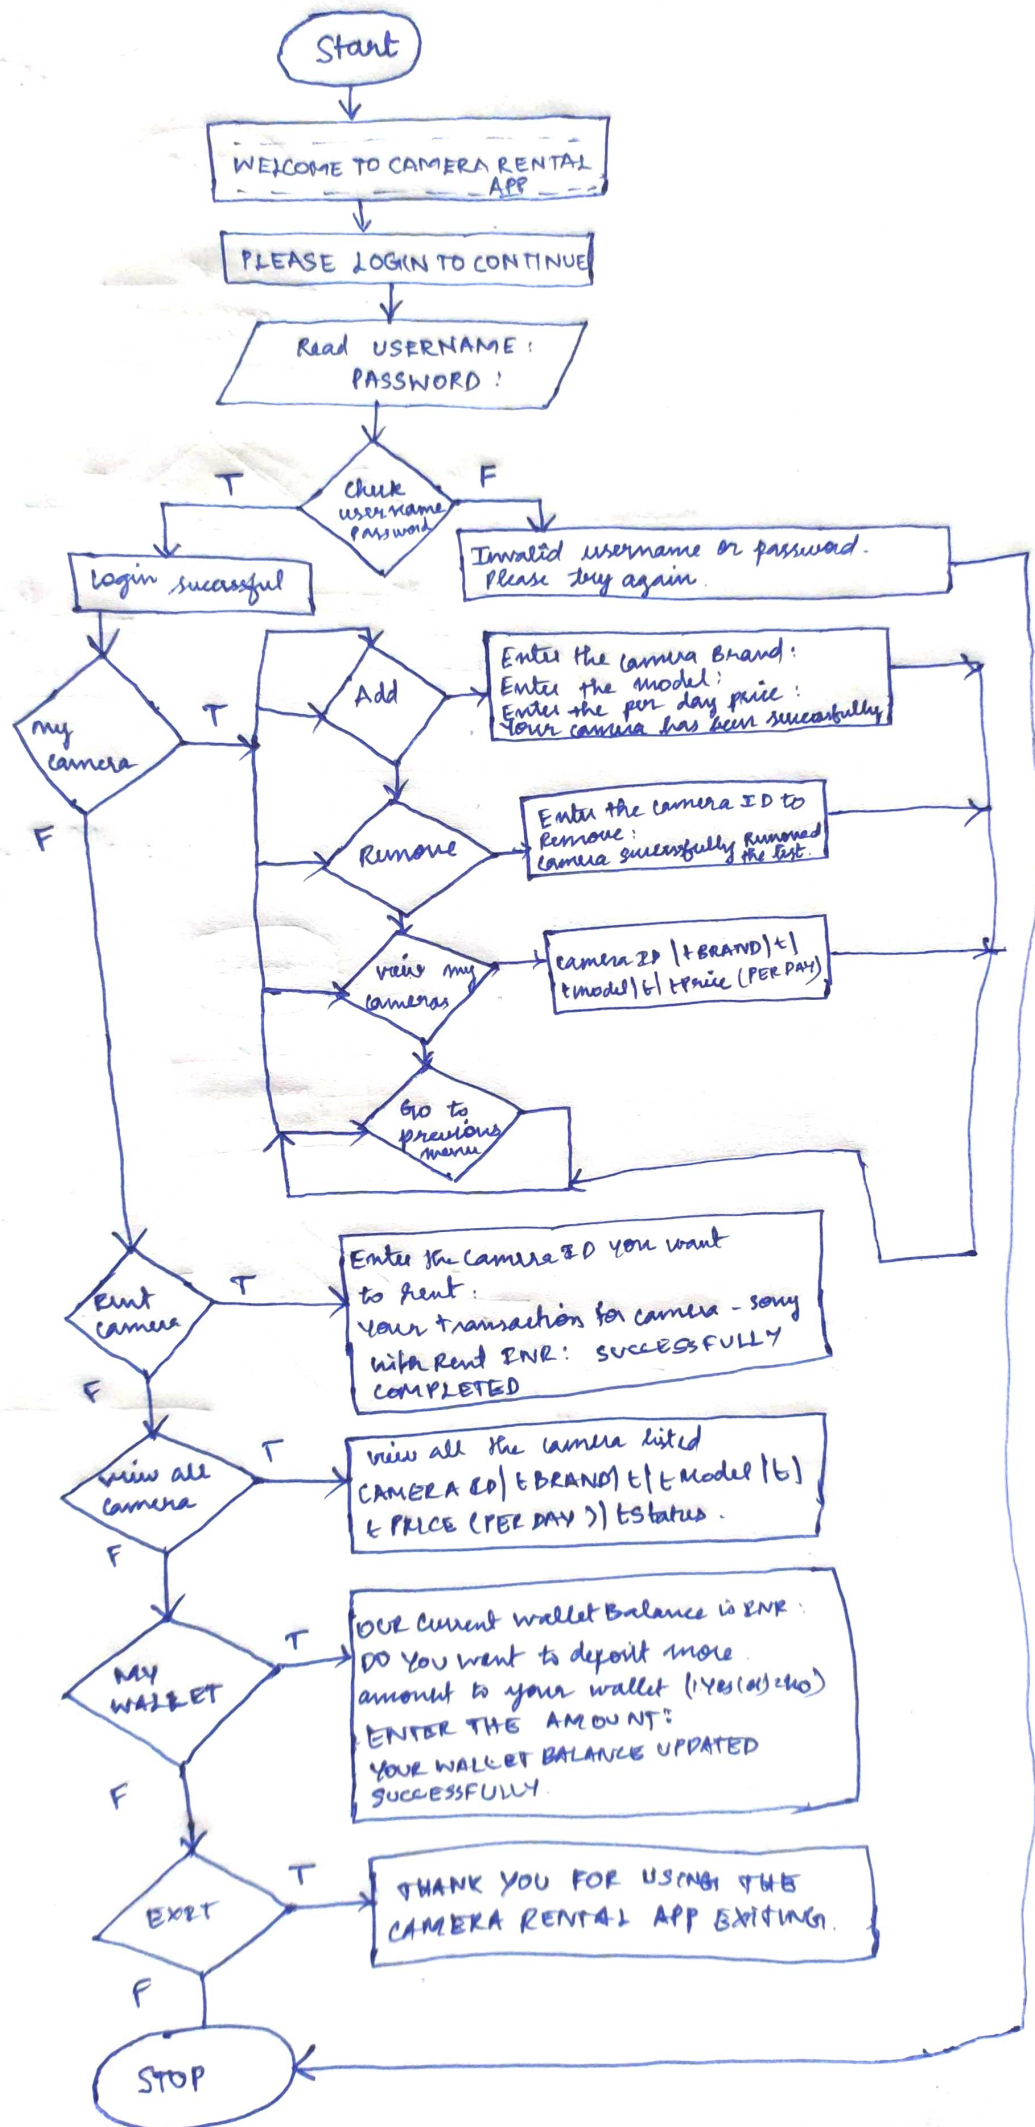 Start
WELCOME TO CAMERA RENTAL
APP
PLEASE LOGIN TO CONTINUE
Read USERNAME:
PASSWORD:
T
F
Check
username
password
Login sucessful
Invalid username or password.
Please try again.
My
camera
T
F
Add
Enter the camera Brand:
Enter the model:
Enter the per day price:
Your camera has been successfully
Remove
Enter the camera ID to
Remove:
camera successfully Removed
the list.
view my
cameras
camera ID |t BRAND|t|
t model|t| t Price (PER DAY)
Go to
previous
menu
Rent
camera
T
F
Enter the camera ID you want
to rent:
Your transaction for camera - sony
Rent INR: SUCCESSFULLY
COMPLETED
view all
camera
T
F
view all the camera listed
CAMERA ID| t BRAND| t| t Model |t|
t PRICE (PER DAY)| t Status.
MY
WALLET
T
F
OUR Current Wallet Balance is INR:
DO YOU want to deposit more
amount to your wallet (1.Yes(or)2.No)
ENTER THE AMOUNT:
YOUR WALLET BALANCE UPDATED
SUCCESSFULLY.
EXIT
T
F
THANK YOU FOR USING THE
CAMERA RENTAL APP EXITING.
STOP